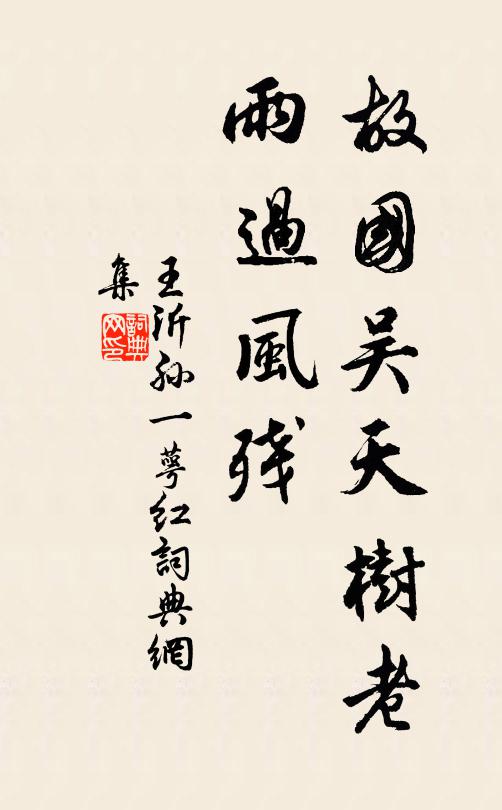 故國吴天樹老
雨過風残
王沂孙一萼红詞典網
集
詞典
网印